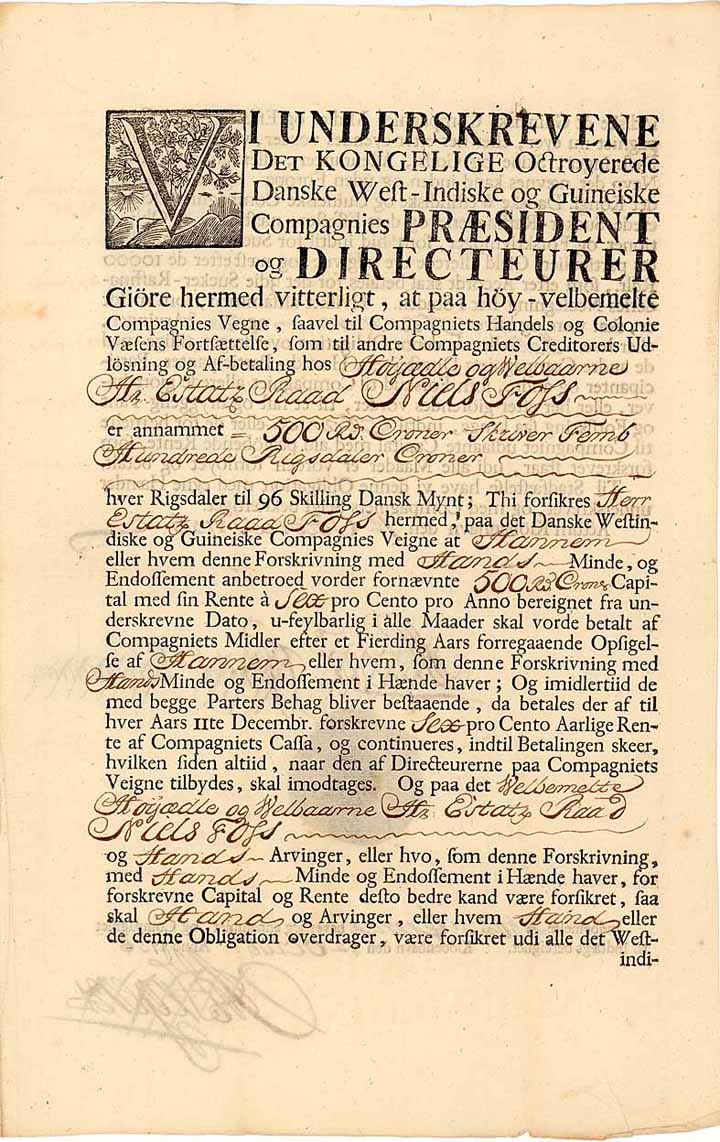 VI UNDERSKREVENE
DET KONGELIGE Octroyerede
Danske West-Indiske og Guineiske
Compagnies PRÆSIDENT
og DIRECTEURER
Giöre hermed vitterligt, at paa höy-velbemelte
Compagnies Vegne, saavel til Compagniets Handels og Colonie
Væsens Fortsættelse, som til andre Compagniets Creditorers Ud-
lösning og Af-betaling hos Höijædle og Welbaarne
Hr. Estatz Raad Niels Foss
er annammet = 500 Rd. Croner Skriver Femb
Hundrede Rigsdaler Croner
hver Rigsdaler til 96 Skilling Dansk Mynt; Thi forsikres Herr
Estatz Raad Foss hermed, paa det Danske Westin-
diske og Guineiske Compagnies Veigne at Hannem
eller hvem denne Forskrivning med Hands Minde, og
Endossement anbetroed vorder fornævnte 500 Rd Croner Capi-
tal med sin Rente à Sex pro Cento pro Anno bereignet fra un-
derskrevne Dato, u-feylbarlig i alle Maader skal vorde betalt af
Compagniets Midler efter et Fierding Aars forregaaende Opsigel-
se af Hannem eller hvem, som denne Forskrivning med
Hands Minde og Endossement i Hænde haver; Og imidlertiid de
med begge Parters Behag bliver bestaaende, da betales der af til
hver Aars 11te Decembr. forskrevne Sex pro Cento Aarlige Ren-
te af Compagniets Cassa, og continueres, indtil Betalingen skeer,
hvilken siden altiid, naar den af Directeurerne paa Compagniets
Veigne tilbydes, skal imodtages. Og paa det Welbemelte
Höijædle og Welbaarne Hr. Estatz Raad
Niels Foss
og Hands Arvinger, eller hvo, som denne Forskrivning,
med Hands Minde og Endossement i Hænde haver, for
forskrevne Capital og Rente desto bedre kand være forsikret, saa
skal Hand og Arvinger, eller hvem Hand eller
de denne Obligation overdrager, være forsikret udi alle det West-
indi-